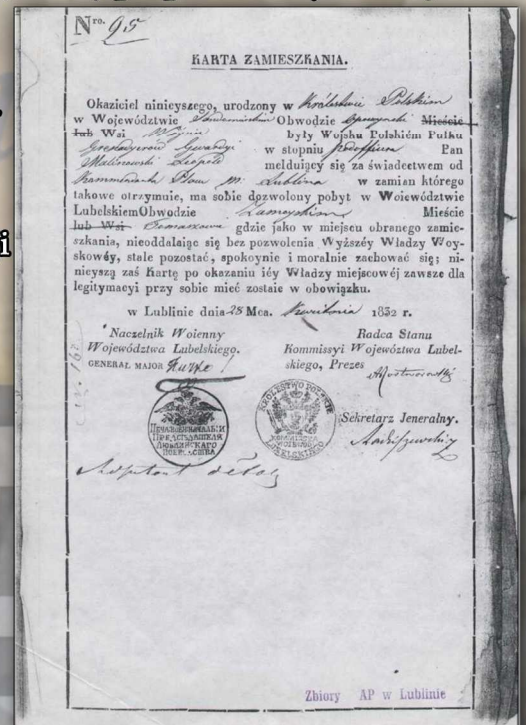 Nro. 95
KARTA ZAMIESZKANIA.
Okaziciel ninieyszego, urodzony w Królestwie Polskiem
w Województwie Sandomirskim Obwodzie Opoczyński Mieście
lub Wsi były Woysku Polskiém Pułku
Grenadyerów Gwardyi w stopniu podofficera Pan
Malinowski Leopold meldujący się za świadectwem od
Kommendanta Placu m. Lublina w zamian którego
takowe otrzymuie, ma sobie dozwolony pobyt w Woiewództwie
Lubelskiem Obwodzie Zamoyskim Mieście
lub Wsi Tomaszowa gdzie jako w miejscu obranego zamie-
szkania, nieoddalaiąc się bez pozwolenia Wyższéy Władzy Woy-
skowéy, stale pozostać, spokoynie i moralnie zachować się; ni-
nieyszą zaś Kartę po okazaniu iéy Władzy miejscowéj zawsze dla
legitymacyi przy sobie mieć zostaie w obowiązku.
w Lublinie dnia 28 Mca. Kwietnia 1832 r.
Naczelnik Woienny
Województwa Lubelskiego.
GENERAŁ MAJOR
Radca Stanu
Kommissyi Województwa Lubel-
skiego, Prezes
KRÓLESTWO POLSKIE
Sekretarz Jeneralny.
Zbiory AP w Lublinie
i